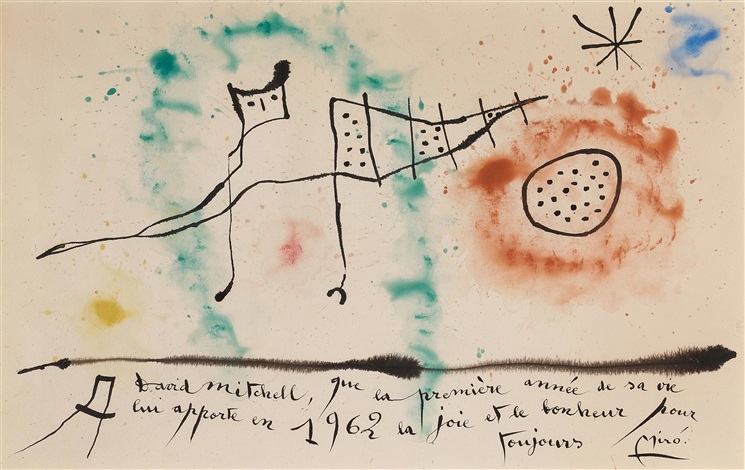 A David Mitchell, que la première année de sa vie
lui apporte en 1962 la joie et le bonheur pour
toujours Miró.